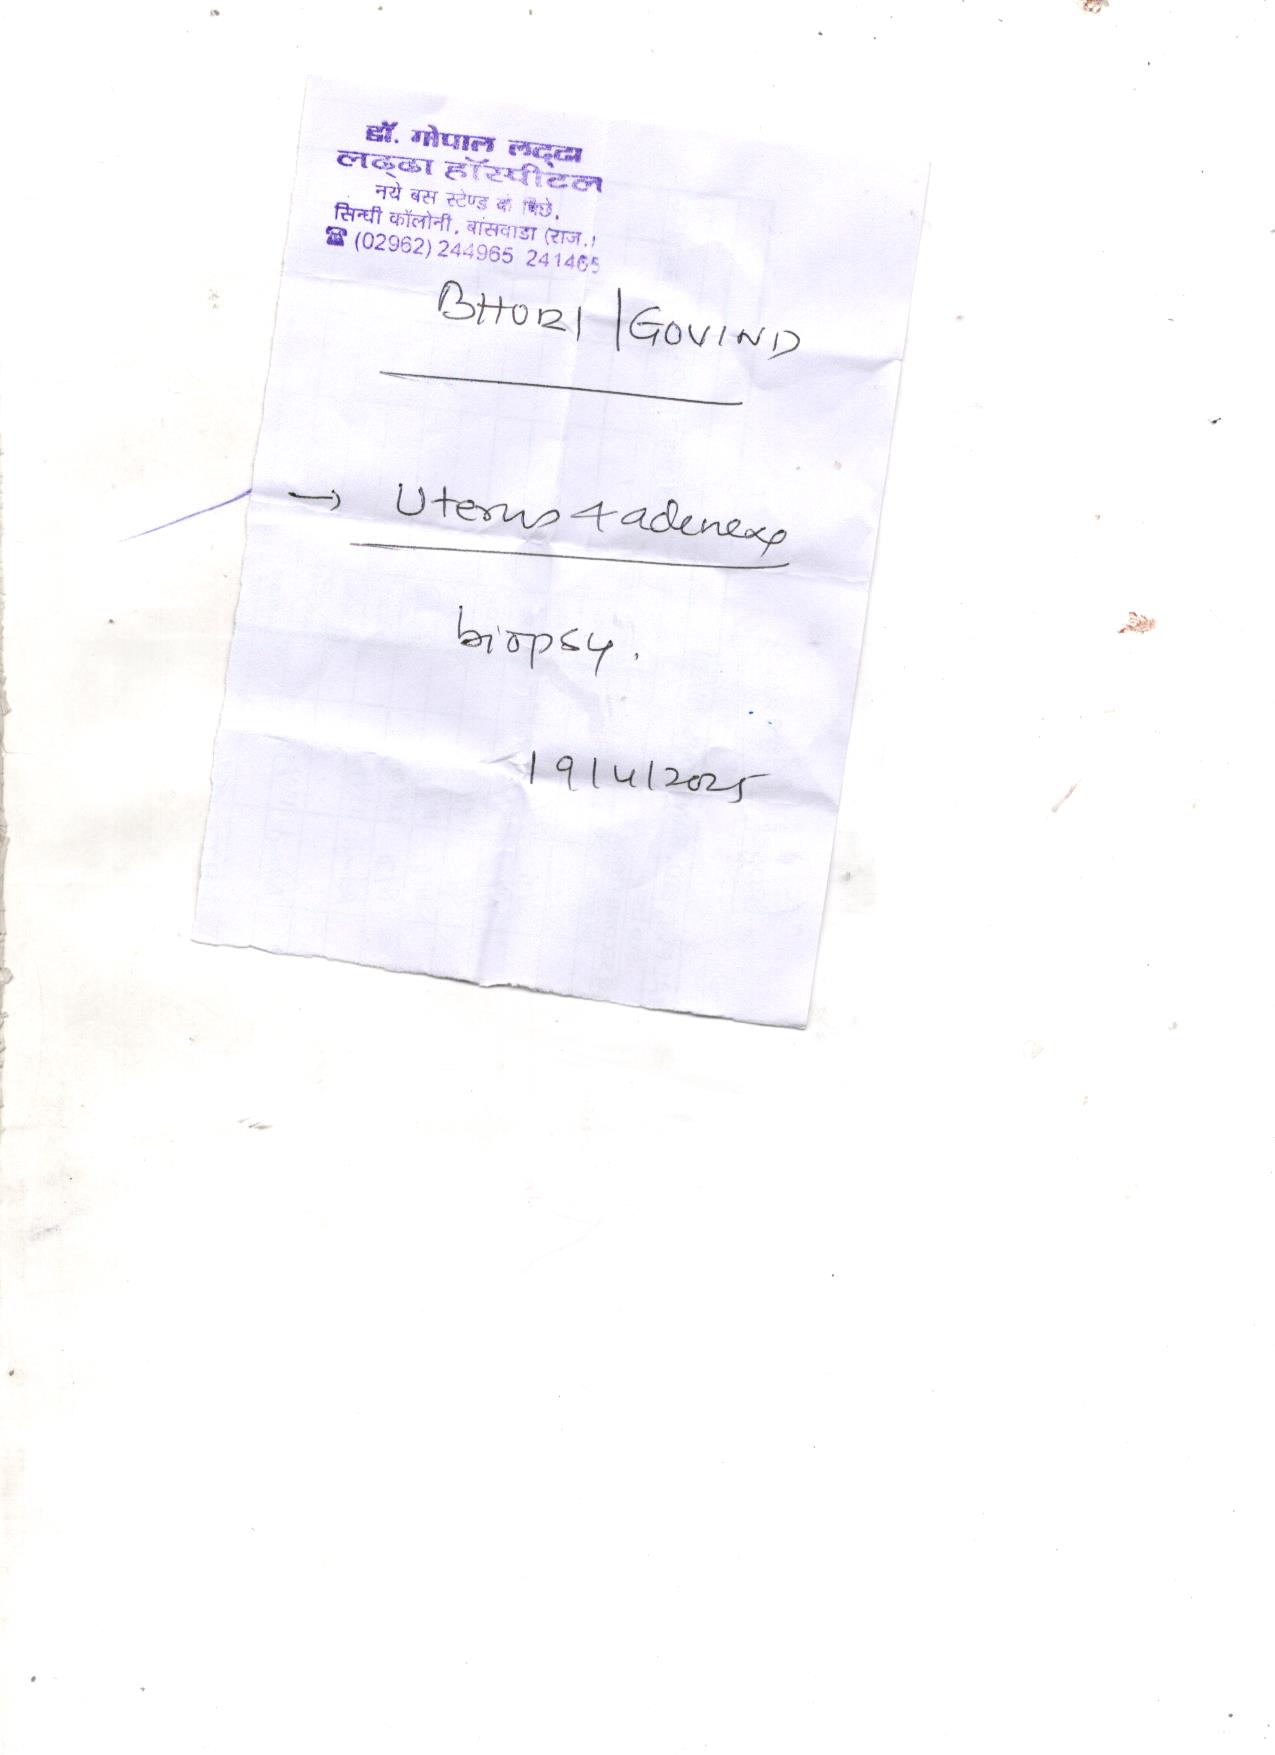 डॉ. गोपाल लद्ढा
लद्ढा हॉस्पीटल
नये बस स्टेण्ड के पिछे,
सिन्धी कॉलोनी, बांसवाडा (राज.)
☎ (02962) 244965 241465
BHURI | GOVIND
→ Uterus + adenexa
biopsy.
19/4/2025